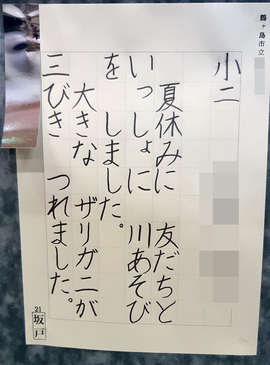 鶴ヶ島市立
小二
夏休みに 友だちと
いっしょに 川あそび
を しました。
大きな ザリガニが
三びき つれました。
21
坂戸